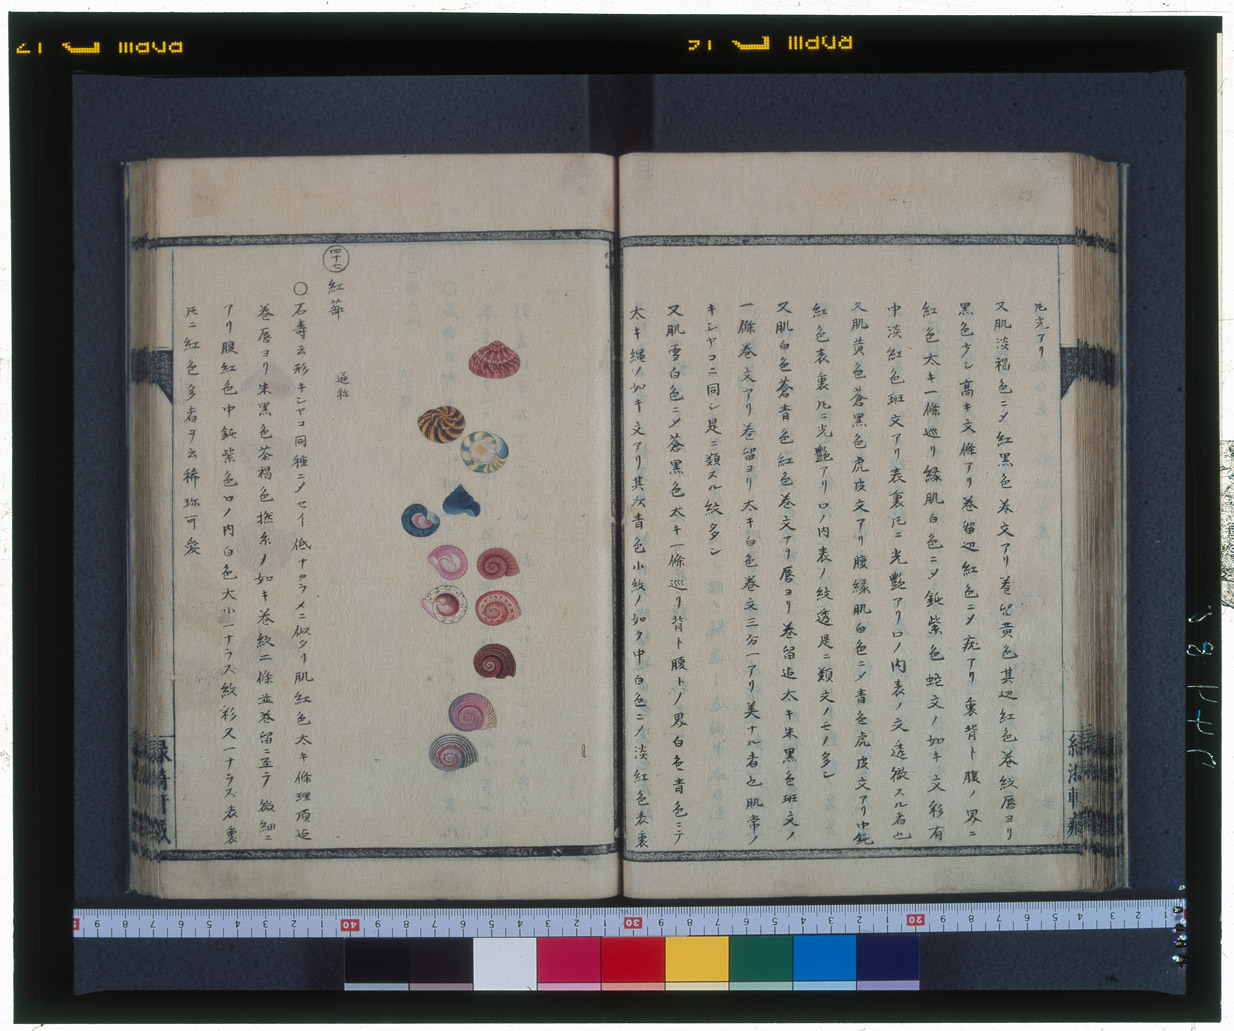 圧光アリ
又肌淡褐色ニメ紅黒色巻文アリ巻留黄色其辺紅色巻紋唇ヨリ
黒色少シ高キ文條アリ巻留辺紅色ニメ疣アリ裏背ト腹ノ界ニ
紅色太キ一條巡リ縁肌白色ニメ鈍紫色蛇文ノ如キ文彩有
中淡紅色斑文アリ表裏圧ニ光艶アリ口ノ内表ノ文透微スル者也
又肌黄色蒼黒色虎皮文アリ腹縁肌白色ニメ青色虎皮文アリ中鈍
紅色表裏圧ニ光艶アリ口ノ内表ノ紋透是ニ類文ノモノ多シ
又肌白色蒼青色紅色巻文アリ唇ヨリ巻留迠太キ朱黒色斑文ノ
一條巻文アリ巻留ヨリ太キ白色巻文三分一アリ美ナル者也肌常ノ
キシヤコニ同シ是ニ類スル紋多シ
又肌雪白色ニメ蒼黒色太キ一條巡リ背ト腹トノ界白色青色ニテ
太キ縄ノ如キ文アリ其次青色小紋ノ如ク中白色ニメ淡紅色表裏
四十七
紅莭
通称
〇石壽云形キシヤコ同種ニメセイ低ナカラメニ似タリ肌紅色太キ條理頂迠
巻唇ヨリ朱黒色茶褐色撚糸ノ如キ巻紋二條並巻留ニ至テ微細ニ
アリ腹紅色中鈍紫色口ノ内白色大小一ナラス紋彩又一ナラス表裏
圧ニ紅色多者ヲ云稀珍可愛